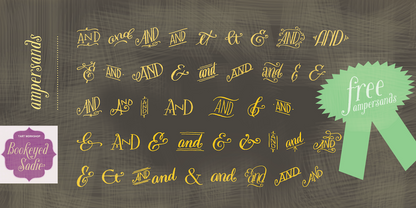 ampersands
AND and AND AND et & & AND AND
& AND AND & and AND and & &
AND AND AND AND AND & AND
& AND & and & and &
& & AND and & and AND AND
free
ampersands
Bookeyed
Sadie